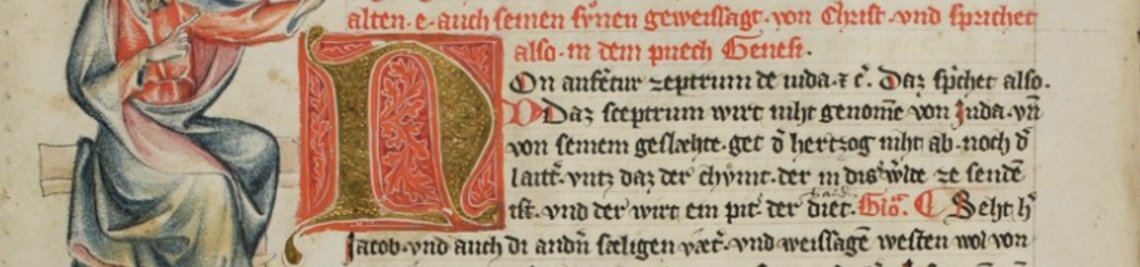 alten· e· auch seinen sůnen geweissagt· von Christ· vnd sprichet
also· in dem puech Genesi·
NOn aufetur zeptrum de iuda· ⁊ c̄· Daz sp̄chet also·
Daz sceptrum wirt niht genom̄e von Juda· vn̄
von seinem geslæhte· get d̄ hertzog niht ab· noch d̄
vntz daz der chv̊mt· der in ze sendē
ist· vnd der wirt ein pit der haid diet· Glō· Seht h̄
Jacob· vnd auch di andn̄ sæligen væt̄· vnd weissagē westen wol von